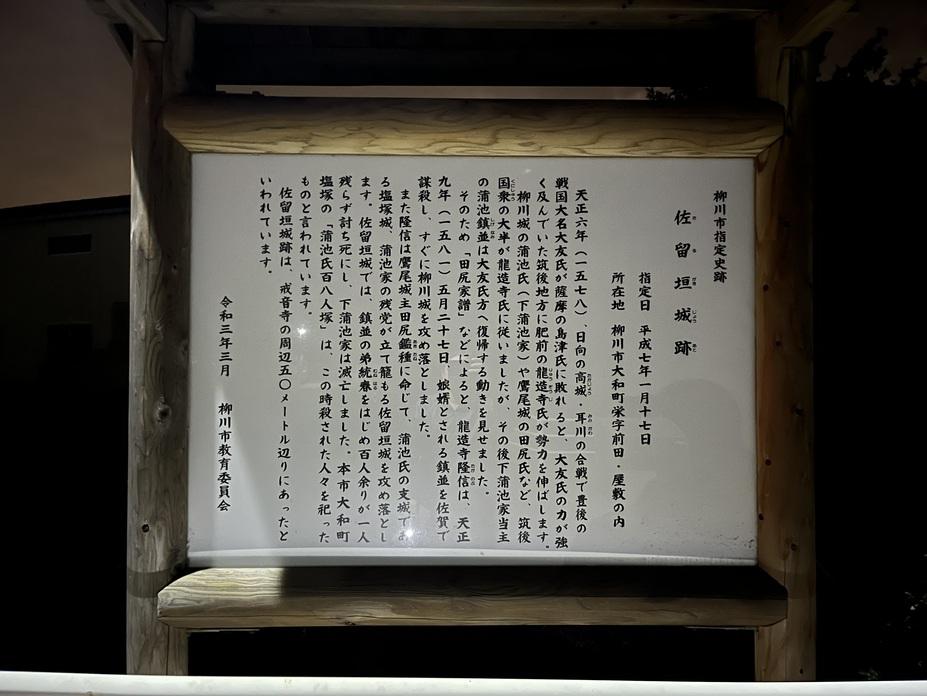 柳川市指定史跡
佐留垣城跡
指定日　平成七年一月十七日
所在地　柳川市大和町栄字前田・屋敷の内
天正六年（一五七八）、日向の高城・耳川の合戦で豊後の
戦国大名大友氏が薩摩の島津氏に敗れると、大友氏の力が強
く及んでいた筑後地方に肥前の龍造寺氏が勢力を伸ばします。
柳川城の蒲池氏（下蒲池家）や鷹尾城の田尻氏など、筑後
国衆の大半が龍造寺氏に従いましたが、その後下蒲池家当主
の蒲池鎮並は大友氏方へ復帰する動きを見せました。
そのため「田尻家譜」などによると、龍造寺隆信は、天正
九年（一五八一）五月二十七日、娘婿とされる鎮並を佐賀で
謀殺し、すぐに柳川城を攻め落としました。
また隆信は鷹尾城主田尻鑑種に命じて、蒲池氏の支城であ
る塩塚城、蒲池家の残党が立て籠もる佐留垣城を攻め落とし
ます。佐留垣城では、鎮並の弟統春をはじめ百人余りが一人
残らず討ち死にし、下蒲池家は滅亡しました。本市大和町
塩塚の「蒲池氏百八人塚」は、この時殺された人々を祀った
ものと言われています。
佐留垣城跡は、戒音寺の周辺五〇メートル辺りにあったと
いわれています。
令和三年三月　柳川市教育委員会